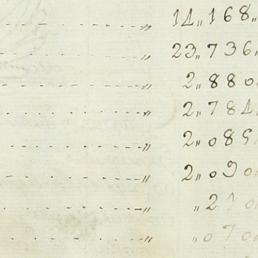 " 14,,168,,
" 23,,736
" 2,,880
" 2,,784
" 2,,085
" 2,,090
" ,,270
" ,,070